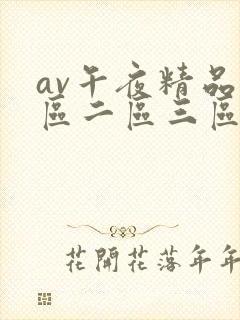 av午夜精品
區二區三區
花開花落年年